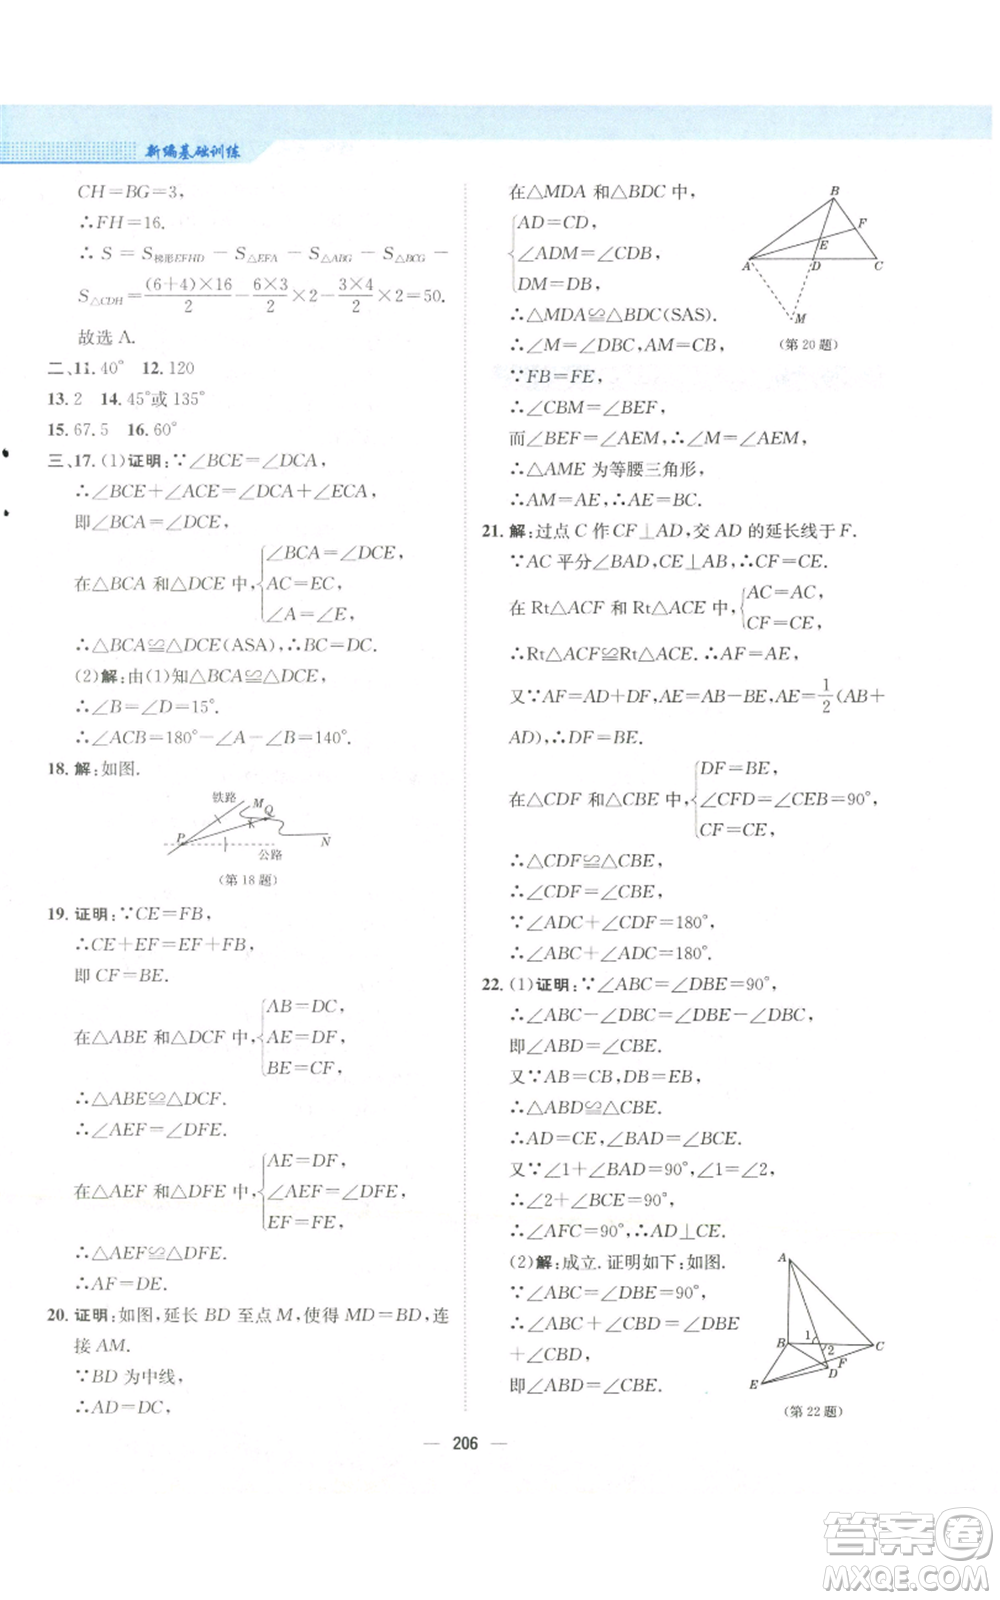 新编基础训练
CH=BG=3,
∴FH=16.
∴ S = S梯形EFHD − S△EFA − S△ABG − S△BCG −
S△CDH = (6+4)×16/2 − 6×3/2×2 − 3×4/2×2=50.
故选 A.
二、11. 40° 12. 120
13. 2 14. 45°或 135°
15. 67.5 16. 60°
三、17. (1)证明:∵∠BCE=∠DCA,
∴∠BCE+∠ACE=∠DCA+∠ECA,
即∠BCA=∠DCE,
在△BCA 和△DCE 中, { ∠BCA=∠DCE,
AC=EC,
∠A=∠E,
∴△BCA≌△DCE(ASA),∴BC=DC.
(2)解:由(1)知△BCA≌△DCE,
∴∠B=∠D=15°.
∴∠ACB=180°−∠A−∠B=140°.
18. 解:如图.
铁路 M Q
P N
公路
(第 18 题)
19. 证明:∵CE=FB,
∴CE+EF=EF+FB,
即 CF=BE.
在△ABE 和△DCF 中, { AB=DC,
AE=DF,
BE=CF,
∴△ABE≌△DCF.
∴∠AEF=∠DFE.
在△AEF 和△DFE 中, { AE=DF,
∠AEF=∠DFE,
EF=FE,
∴△AEF≌△DFE.
∴AF=DE.
20. 证明:如图,延长 BD 至点 M,使得 MD=BD,连
接 AM.
∵BD 为中线,
∴AD=DC,
在△MDA 和△BDC 中,
{ AD=CD,
∠ADM=∠CDB,
DM=DB,
∴△MDA≌△BDC(SAS).
∴∠M=∠DBC,AM=BC.
∵FB=FE,
∴∠CBM=∠BEF.
而∠BEF=∠AEM,∴∠M=∠AEM,
∴△AME 为等腰三角形,
∴AM=AE,∴AE=BC.
B
F
E
A D C
M
(第 20 题)
21. 解:过点 C 作 CF⊥AD,交 AD 的延长线于 F.
∵AC 平分∠BAD,CE⊥AB,∴CF=CE.
在 Rt△ACF 和 Rt△ACE 中, { AC=AC,
CF=CE,
∴Rt△ACF≌Rt△ACE.∴AF=AE,
又∵AF=AD+DF,AE=AB−BE,AE=1/2(AB+
AD),∴DF=BE.
在△CDF 和△CBE 中, { DF=BE,
∠CFD=∠CEB=90°,
CF=CE,
∴△CDF≌△CBE,
∴∠CDF=∠CBE,
∵∠ADC+∠CDF=180°,
∴∠ABC+∠ADC=180°.
22. (1)证明:∵∠ABC=∠DBE=90°,
∴∠ABC−∠DBC=∠DBE−∠DBC,
即∠ABD=∠CBE.
又∵AB=CB,DB=EB,
∴△ABD≌△CBE,
∴AD=CE,∠BAD=∠BCE.
又∵∠1+∠BAD=90°,∠1=∠2,
∴∠2+∠BCE=90°,
∴∠AFC=90°,∴AD⊥CE.
(2)解:成立.证明如下:如图.
∵∠ABC=∠DBE=90°,
∴∠ABC+∠CBD=∠DBE
+∠CBD,
即∠ABD=∠CBE.
A
B 1 2 C
F
D
E
(第 22 题)
206
答案卷
MXQE.COM